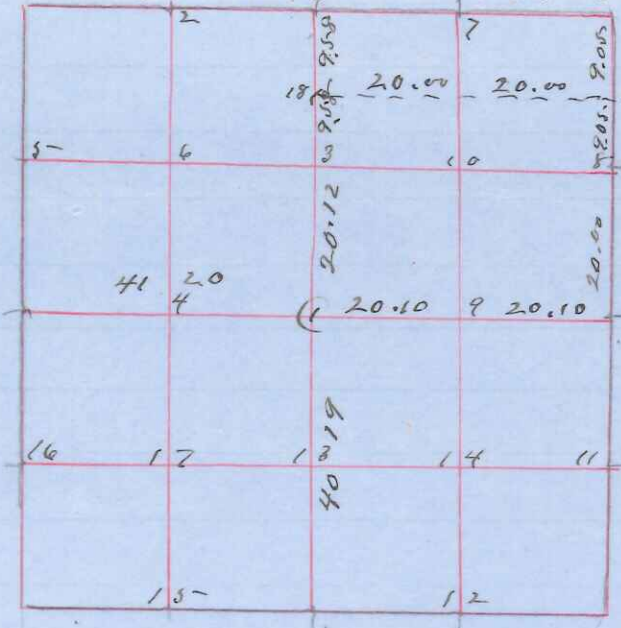 2 7
9.58 9.05
18 20.00 20.00
9.58 9.05
5 6 3 10 8
20.12
20.00
41 20
4 1 20.10 9 20.10
40 19
16 17 13 14 11
15 12